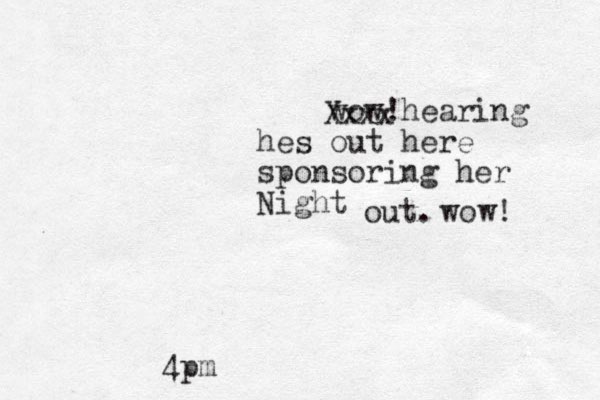 wow! hearing
hes out here
sponsoring her
Night out. wow!
4pm